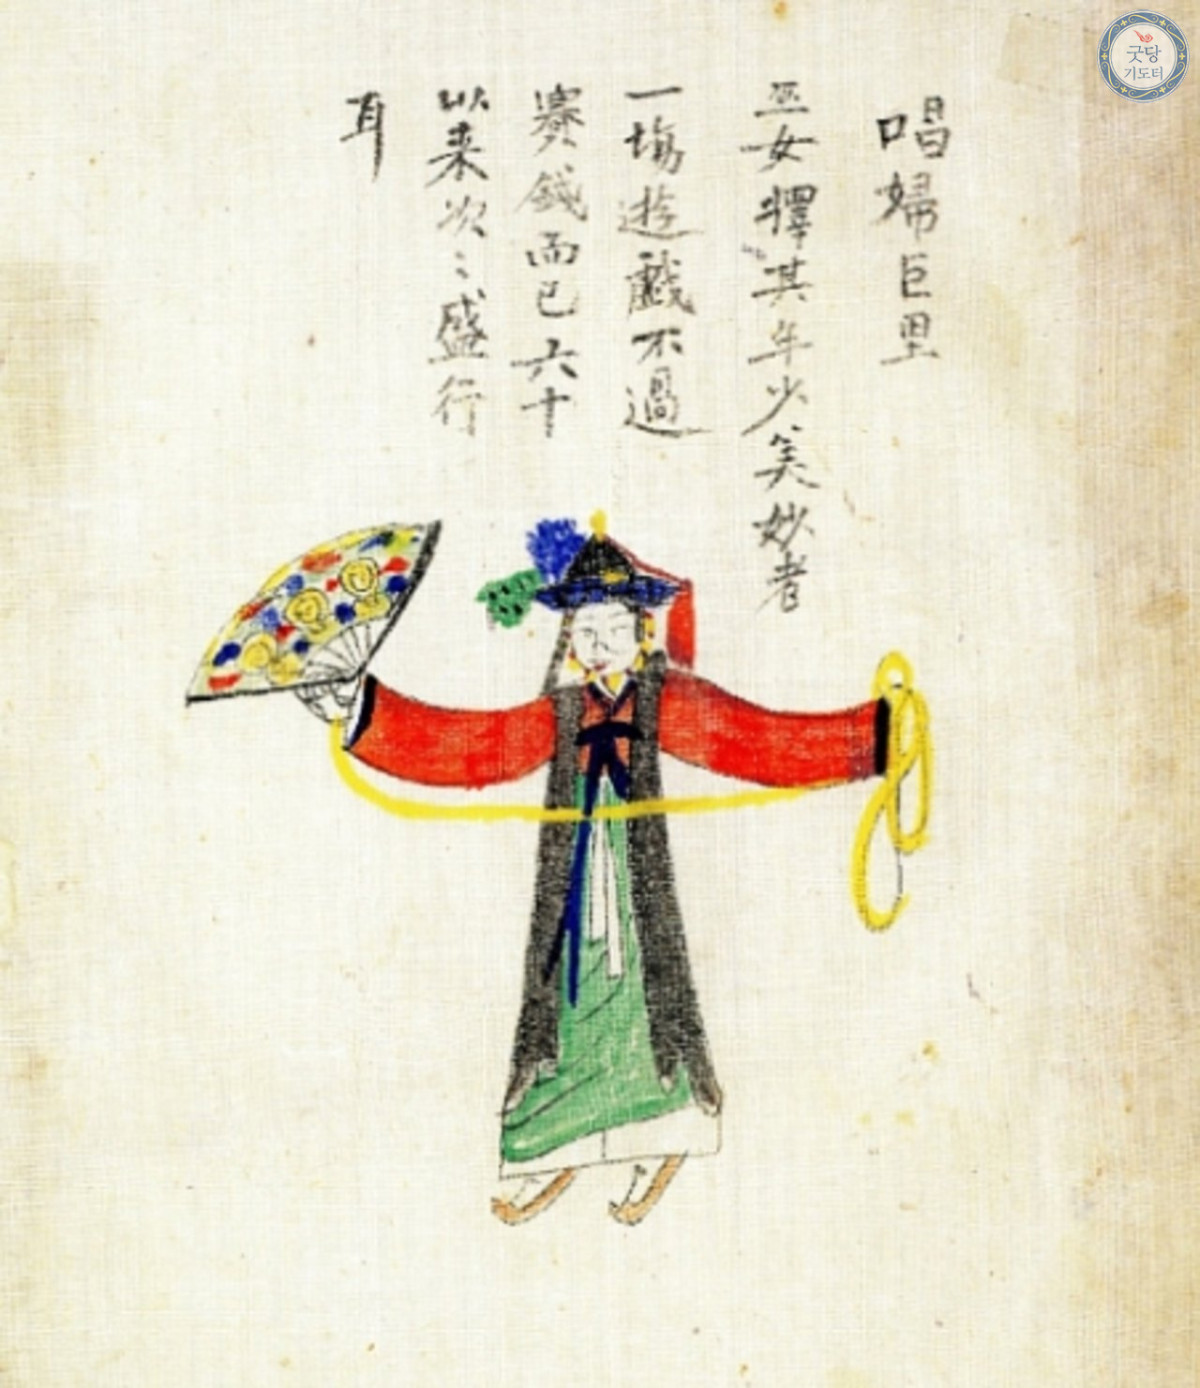 唱婦巨里
巫女擇其年少美妙者
一塲遊戱不過
賽錢而已六十
以来次〻盛行
耳
굿당
기도터